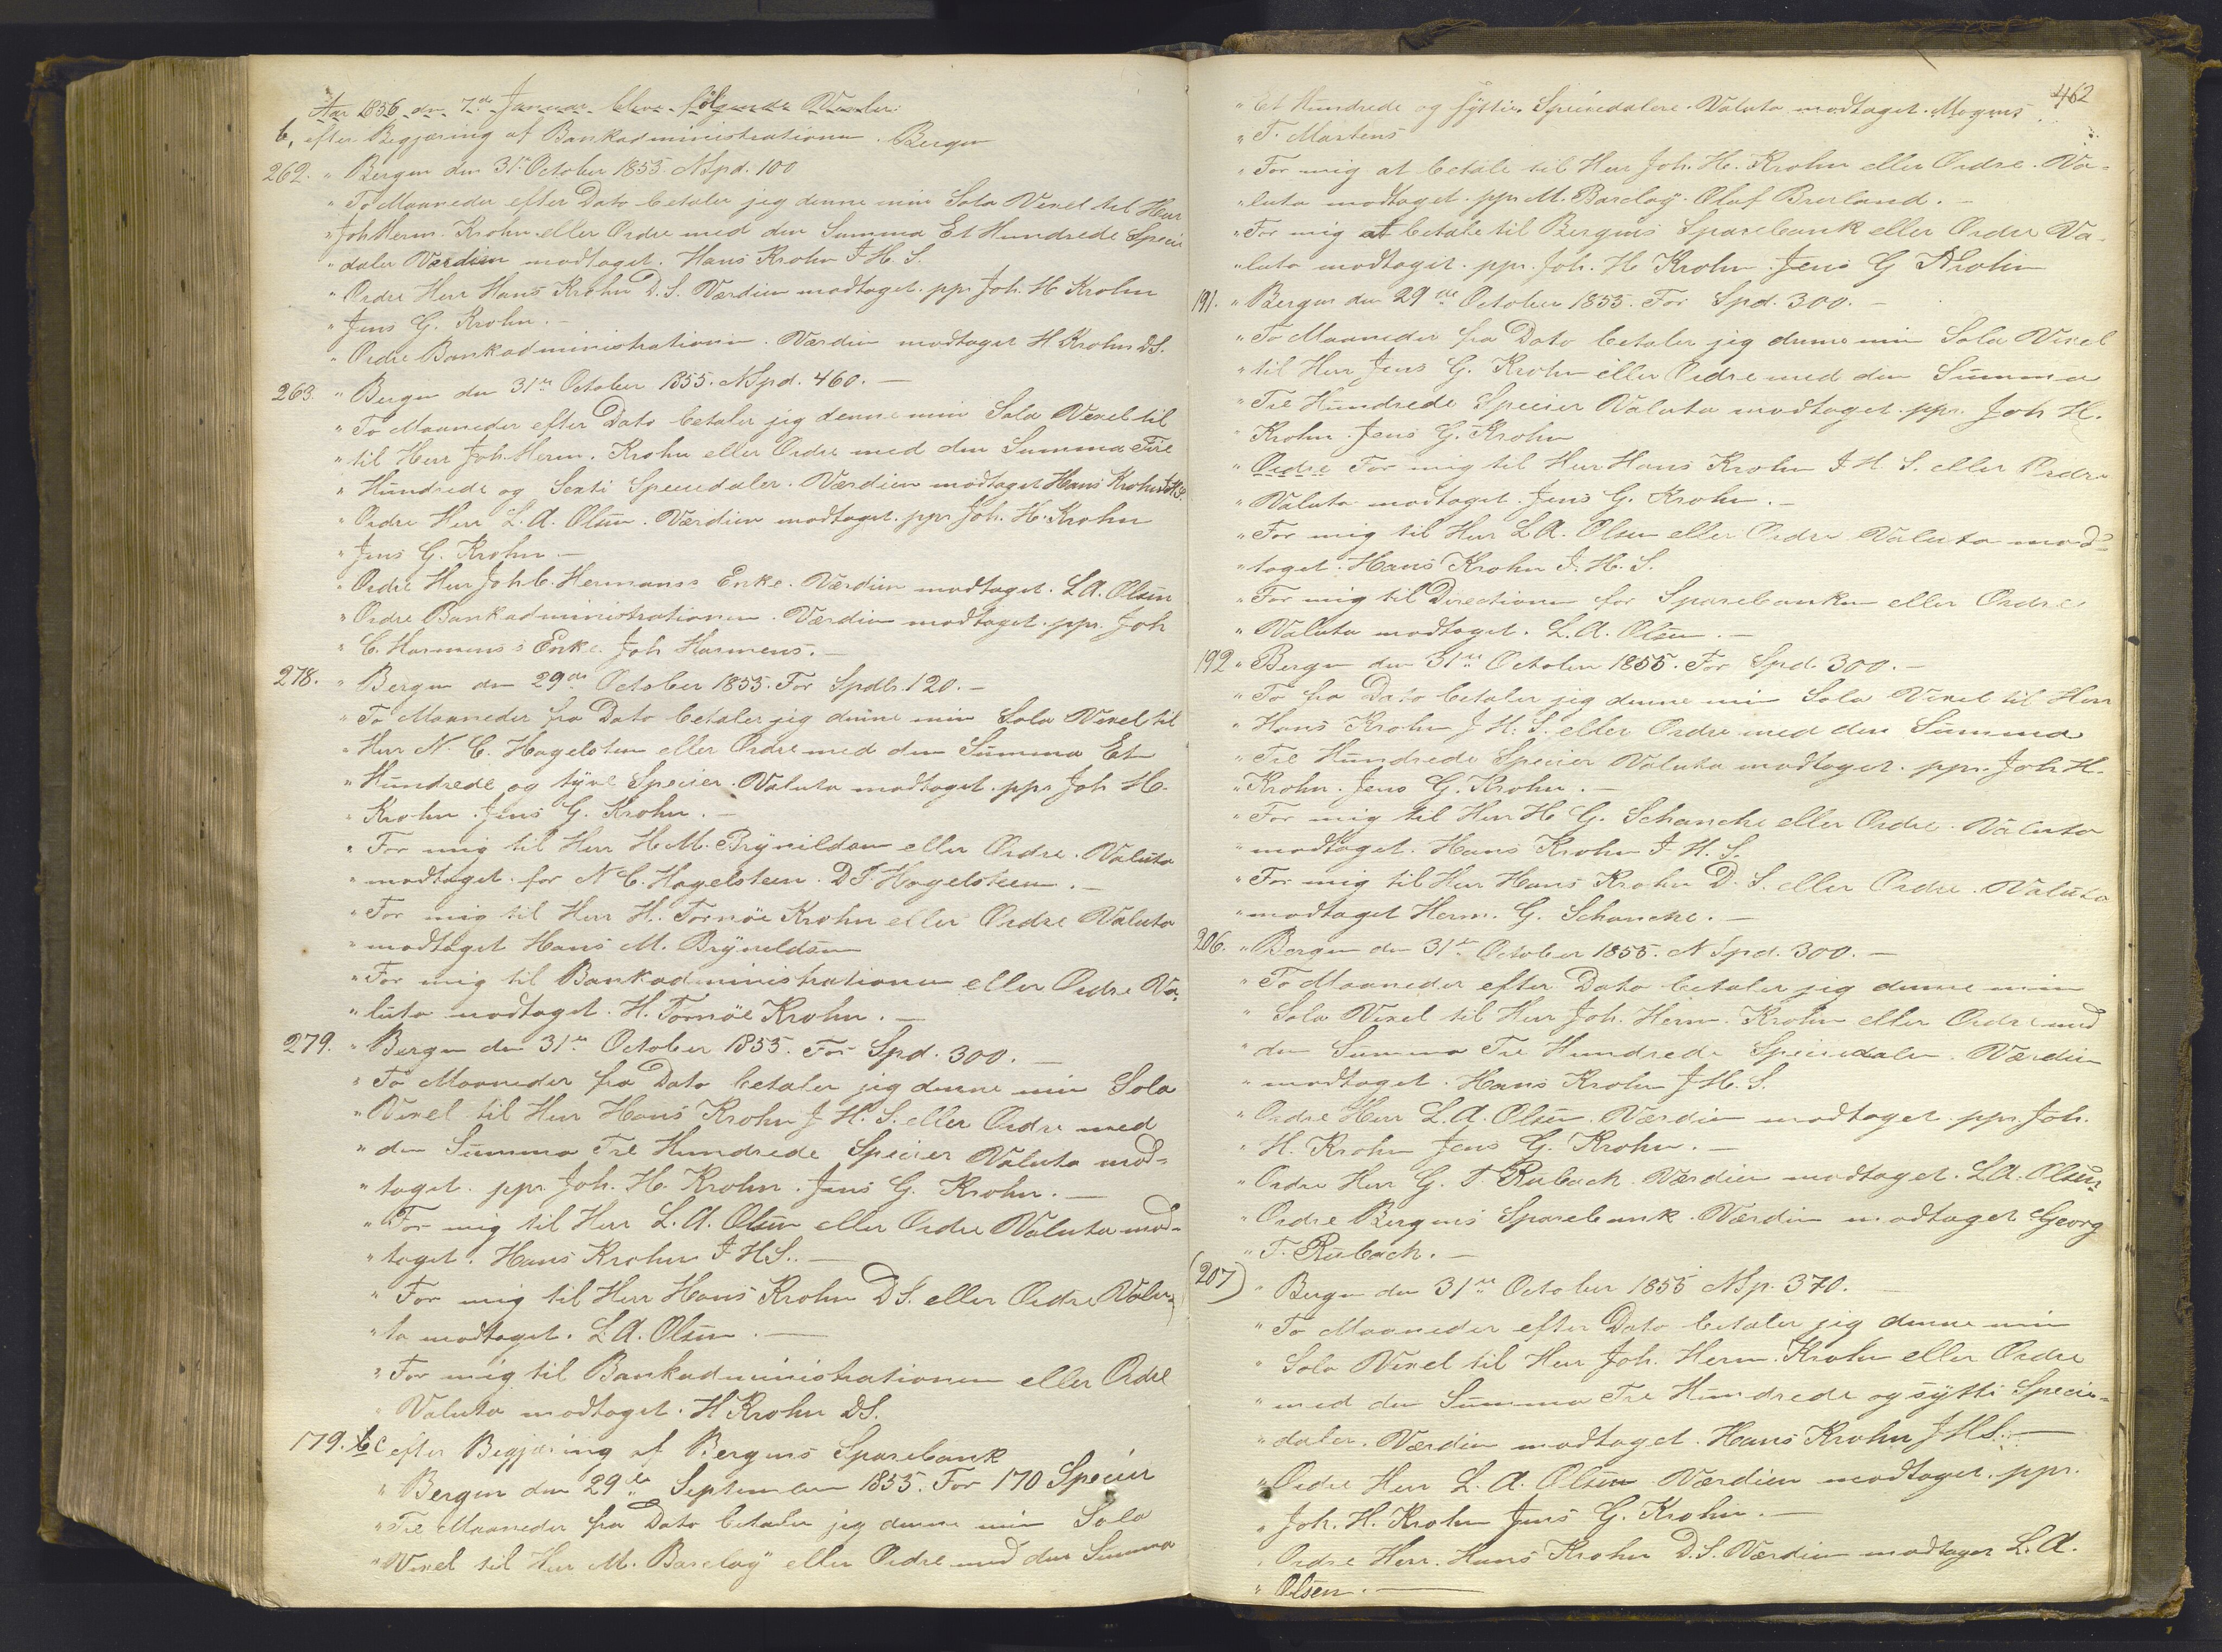 Aar 1856 den 7de Januar blev følgende Vexler:
b, efter Begjæring af Bankadministrationen Bergen
262. " Bergen den 31te October 1855. NSpd. 100
" To Maaneder efter Dato betaler jeg denne min Sola Vexel til Herr
" Joh Herm. Krohn eller Ordre med den Summa Et Hundrede Specie
" daler Værdien modtaget. Hans Krohn J. H. S.
" Ordre Herr Hans Krohn D. S. Værdien modtaget. ppr Joh. H. Krohn
" Jens G. Krohn. —
" Ordre Bankadministrationen. Værdien modtaget H Krohn DS.
263. " Bergen den 31te October 1855. NSpd. 460. —
" To Maaneder efter Dato betaler jeg denne min Sola Vexel til
" til Herr Joh. Herm. Krohn eller Ordre med den Summa Fire
" Hundrede og Sexti Speciedaler. Værdien modtaget Hans Krohn JHS
" Ordre Herr L. A. Olsen. Værdien modtaget. ppr Joh. H. Krohn
" Jens G. Krohn —
" Ordre Herr Joh C. Hermanss Enke. Værdien modtaget. L A. Olsen
" Ordre Bankadministrationen. Værdien modtaget. ppr. Joh
" C. Harmens's Enke. Joh Harmens. —
278. " Bergen den 29de October 1855. For Spdlr. 120. —
" To Maaneder fra Dato betaler jeg denne min Sola Vexel til
" Herr N. C. Hagelsteen eller Ordre med den Summa Et
" Hundrede og tyve Specier. Valuta modtaget. ppr Joh H.
" Krohn. Jens G. Krohn. —
" For mig til Herr H. M. Brynildsen eller Ordre. Valuta
" modtaget. for N C. Hagelsteen. D. F. Hagelsteen. —
" For mig til Herr H. Tornöe Krohn eller Ordre Valuta
" modtaget Hans M. Bryneldsen
" For mig til Bankadministrationen eller Ordre Va-
" luta modtaget. H. Tornöe Krohn. —
279. " Bergen den 31te October 1855. For Spd. 300. —
" To Maaneder fra Dato betaler jeg denne min Sola
" Vexel til Herr Hans Krohn J H. S. eller Ordre med
" den Summa Tre Hundrede Specier Valuta mod-
" taget. ppr. Joh. H. Krohn. Jens G. Krohn. —
" For mig til Herr L. A. Olsen eller Ordre Valuta mod-
" taget. Hans Krohn J HS. —
" For mig til Herr Hans Krohn D S. eller Ordre Valu-
" ta modtaget. L A. Olsen. —
" For mig til Bankadministrationen eller Ordre
" Valuta modtaget. H Krohn DS.
179. c efter Begjæring af Bergens Sparebank
" Bergen den 29de September 1855. For 170 Specier
" Tre Maaneder fra Dato betaler jeg denne min Sola
" Vexel til Herr M. Barclay eller Ordre med den Summa
462
" Et Hundrede og sytti Speciedalere. Valuta modtaget. Mogens
" T. Martens
" For mig at betale til Herr Joh. H. Krohn eller Ordre. Va-
" luta modtaget. ppr M. Barclay. Olaf Breiland. —
" For mig at betale til Bergens Sparebank eller Ordre Va-
" luta modtaget. ppr. Joh. H Krohn. Jens G Krohn
191. " Bergen den 29de October 1855. For Spd. 300. —
" To Maaneder fra Dato betaler jeg denne min Sola Vexel
" til Herr Jens G. Krohn eller Ordre med den Summa
" Tre Hundrede Specier Valuta modtaget. ppr. Joh H.
" Krohn. Jens G. Krohn
" Ordre For mig til Herr Hans Krohn J H S. eller Ordre
" Valuta modtaget. Jens G. Krohn. —
" For mig til Herr L A. Olsen eller Ordre Valuta mod-
" taget. Hans Krohn J. H. S.
" For mig til Directionen for Sparebanken eller Ordre
" Valuta modtaget. L. A. Olsen. —
192 " Bergen den 31te October 1855. For Spd. 300. —
" To fra Dato betaler jeg denne min Sola Vexel til Herr
" Hans Krohn J. H. S. eller Ordre med den Summa
" Tre Hundrede Specier Valuta modtaget. ppr. Joh H.
" Krohn. Jens G. Krohn. —
" For mig til Herr H G. Schancke eller Ordre. Valuta
" modtaget. Hans Krohn J. H. S.
" For mig til Herr Hans Krohn D. S. eller Ordre. Valuta
" modtaget Herm. G. Schancke. —
206. " Bergen den 31te October 1855. N Spd. 300. —
" To Maaneder efter Dato betaler jeg denne min
" Sola Vexel til Herr Joh. Herm. Krohn eller Ordre med
" den Summa Tre Hundrede Speciedaler. Værdien
" modtaget. Hans Krohn J H. S.
" Ordre Herr L. A. Olsen. Værdien modtaget ppr. Joh.
" H. Krohn Jens G. Krohn. —
" Ordre Herr G. F. Rieback. Værdien modtaget. L A. Olsen
" Ordre Bergens Sparebank. Værdien modtaget Georg
" F. Rieback. —
(207) " Bergen den 31te October 1855 NSp. 370. —
" To Maaneder efter Dato betaler jeg denne min
" Sola Vexel til Herr Joh. Herm. Krohn eller Ordre
" med den Summa Tre Hundrede og sytti Specie-
" daler. Værdien modtaget. Hans Krohn J H S. —
" Ordre Herr L. A. Olsen Værdien modtaget. ppr.
" Joh. H. Krohn Jens G. Krohn. —
" Ordre Herr Hans Krohn D. S. Værdien modtaget L. A.
" Olsen. —